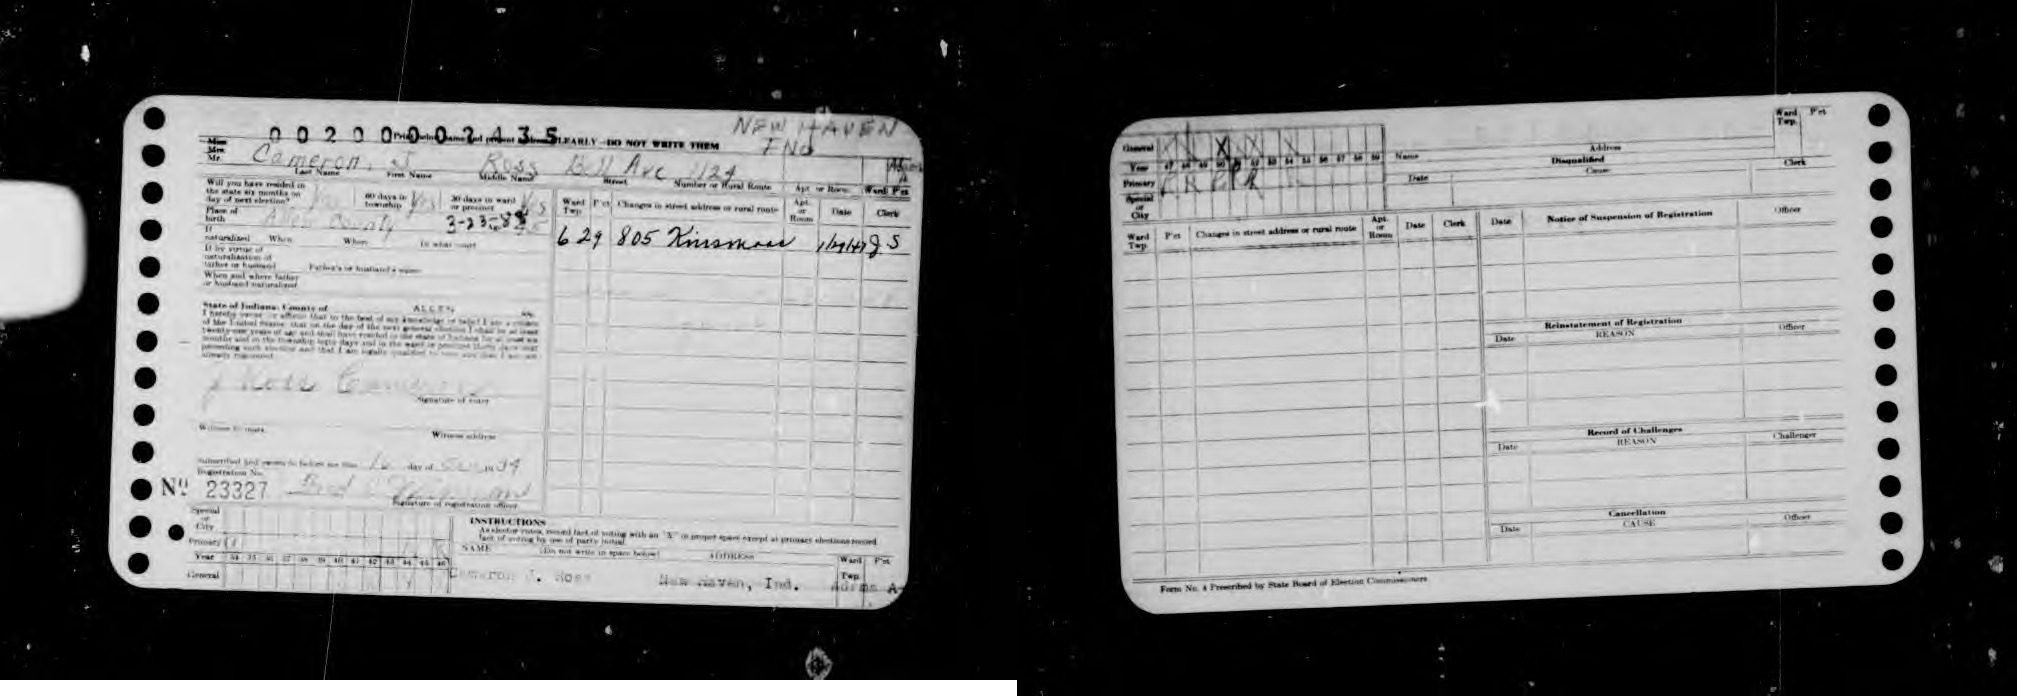 00200002435
CLEARLY - DO NOT WRITE THEM
NEW HAVEN
IND
Miss
Mrs.
Mr.
Cameron, J Ross Bell Ave 1124
Last Name First Name Middle Name Street Number or Rural Route Apt. or Room Ward Pct
Will you have resided in
the state six months on
day of next election? Yes 60 days in township Yes 30 days in ward or precinct Yes
Place of
birth Allen County 3-23-
If
naturalized When Where In what court
If by virtue of
naturalization of
father or husband Father's or husband's name
When and where father
or husband naturalized
State of Indiana: County of ALLEN ss.
I hereby swear or affirm that to the best of my knowledge or belief I am a citizen
of the United States; that on the day of the next general election I shall be at least
twenty-one years of age and shall have resided in the state of Indiana for at least six
months and in the township sixty days and in the ward or precinct thirty days next
preceding such election and that I am legally qualified to vote and that I am not
already registered.
J Ross Cameron
Signature of voter
Witness to mark Witness address
Subscribed and sworn to before me this 16 day of 19 34
Registration No.
No 23327
Signature of registration officer
Special
or
City
Primary
Year 34 35 36 37 38 39 40 41 42 43 44 45 46
General
Ward Twp. Pct Changes in street address or rural route Apt. or Room Date Clerk
6 29 805 Kinsmoor J S
INSTRUCTIONS
As elector votes, record fact of voting with an "X" in proper space except at primary elections record
fact of voting by use of party initial.
NAME (Do not write in space below) ADDRESS Ward Twp. Pct
Cameron J. Ross New Haven, Ind. Adams A
General X
Year 47 48 49 50 51 52 53 54 55 56 57 58 59
Primary R R R R R
Special
or
City
Ward Twp. Pct
Name Address
Disqualified
Date Cause Clerk
Ward Twp. Pct Changes in street address or rural route Apt. or Room Date Clerk
Date Notice of Suspension of Registration Officer
Reinstatement of Registration
Date REASON Officer
Record of Challenges
Date REASON Challenger
Cancellation
Date CAUSE Officer
Form No. 4 Prescribed by State Board of Election Commissioners